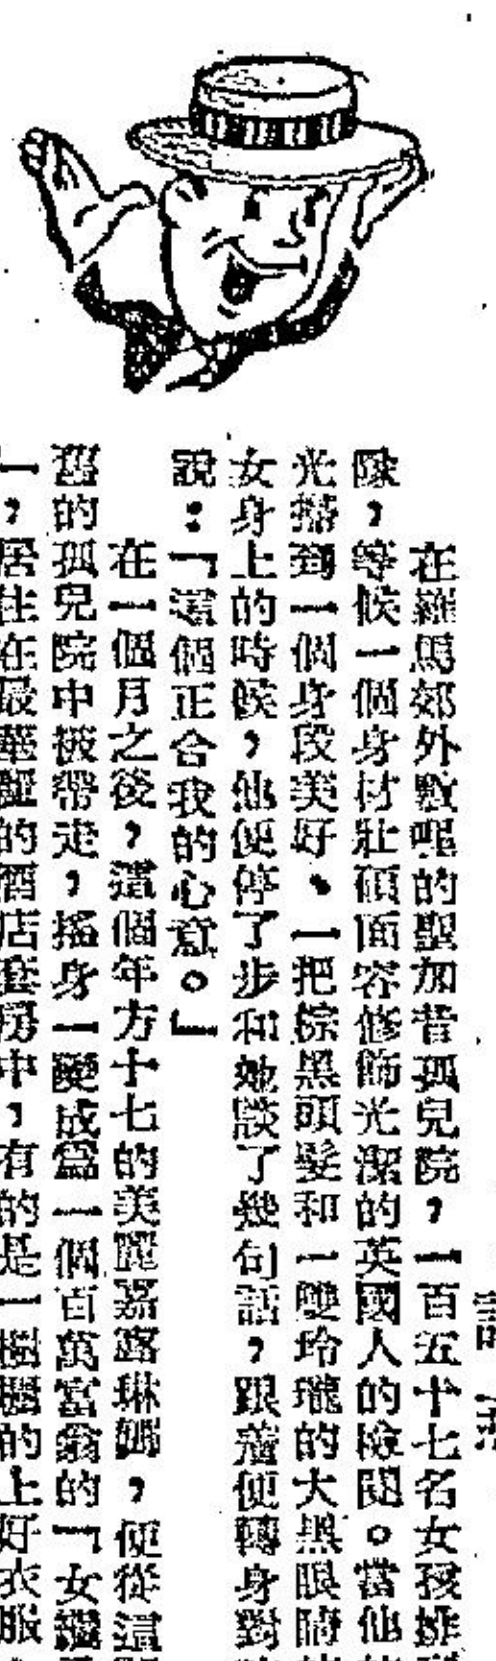 在羅馬郊外數哩的聖加昔孤兒院，一百五十七名女孩排
隊，等候一個身材壯碩面容修飾光潔的英國人的檢閱。當他
光落到一個身段美好、一把棕黑頭髮和一雙玲瓏的大黑眼睛
女身上的時候，他便停了步和她談了幾句話，跟着便轉身對
說：「這個正合我的心意。」
在一個月之後，這個年方十七的美麗嘉露琳娜，便從這
舊的孤兒院中被帶走，搖身一變成為一個百萬富翁的「女繼
一，居住在最華麗的酒店套房中，有的是一櫥櫥的上好衣服